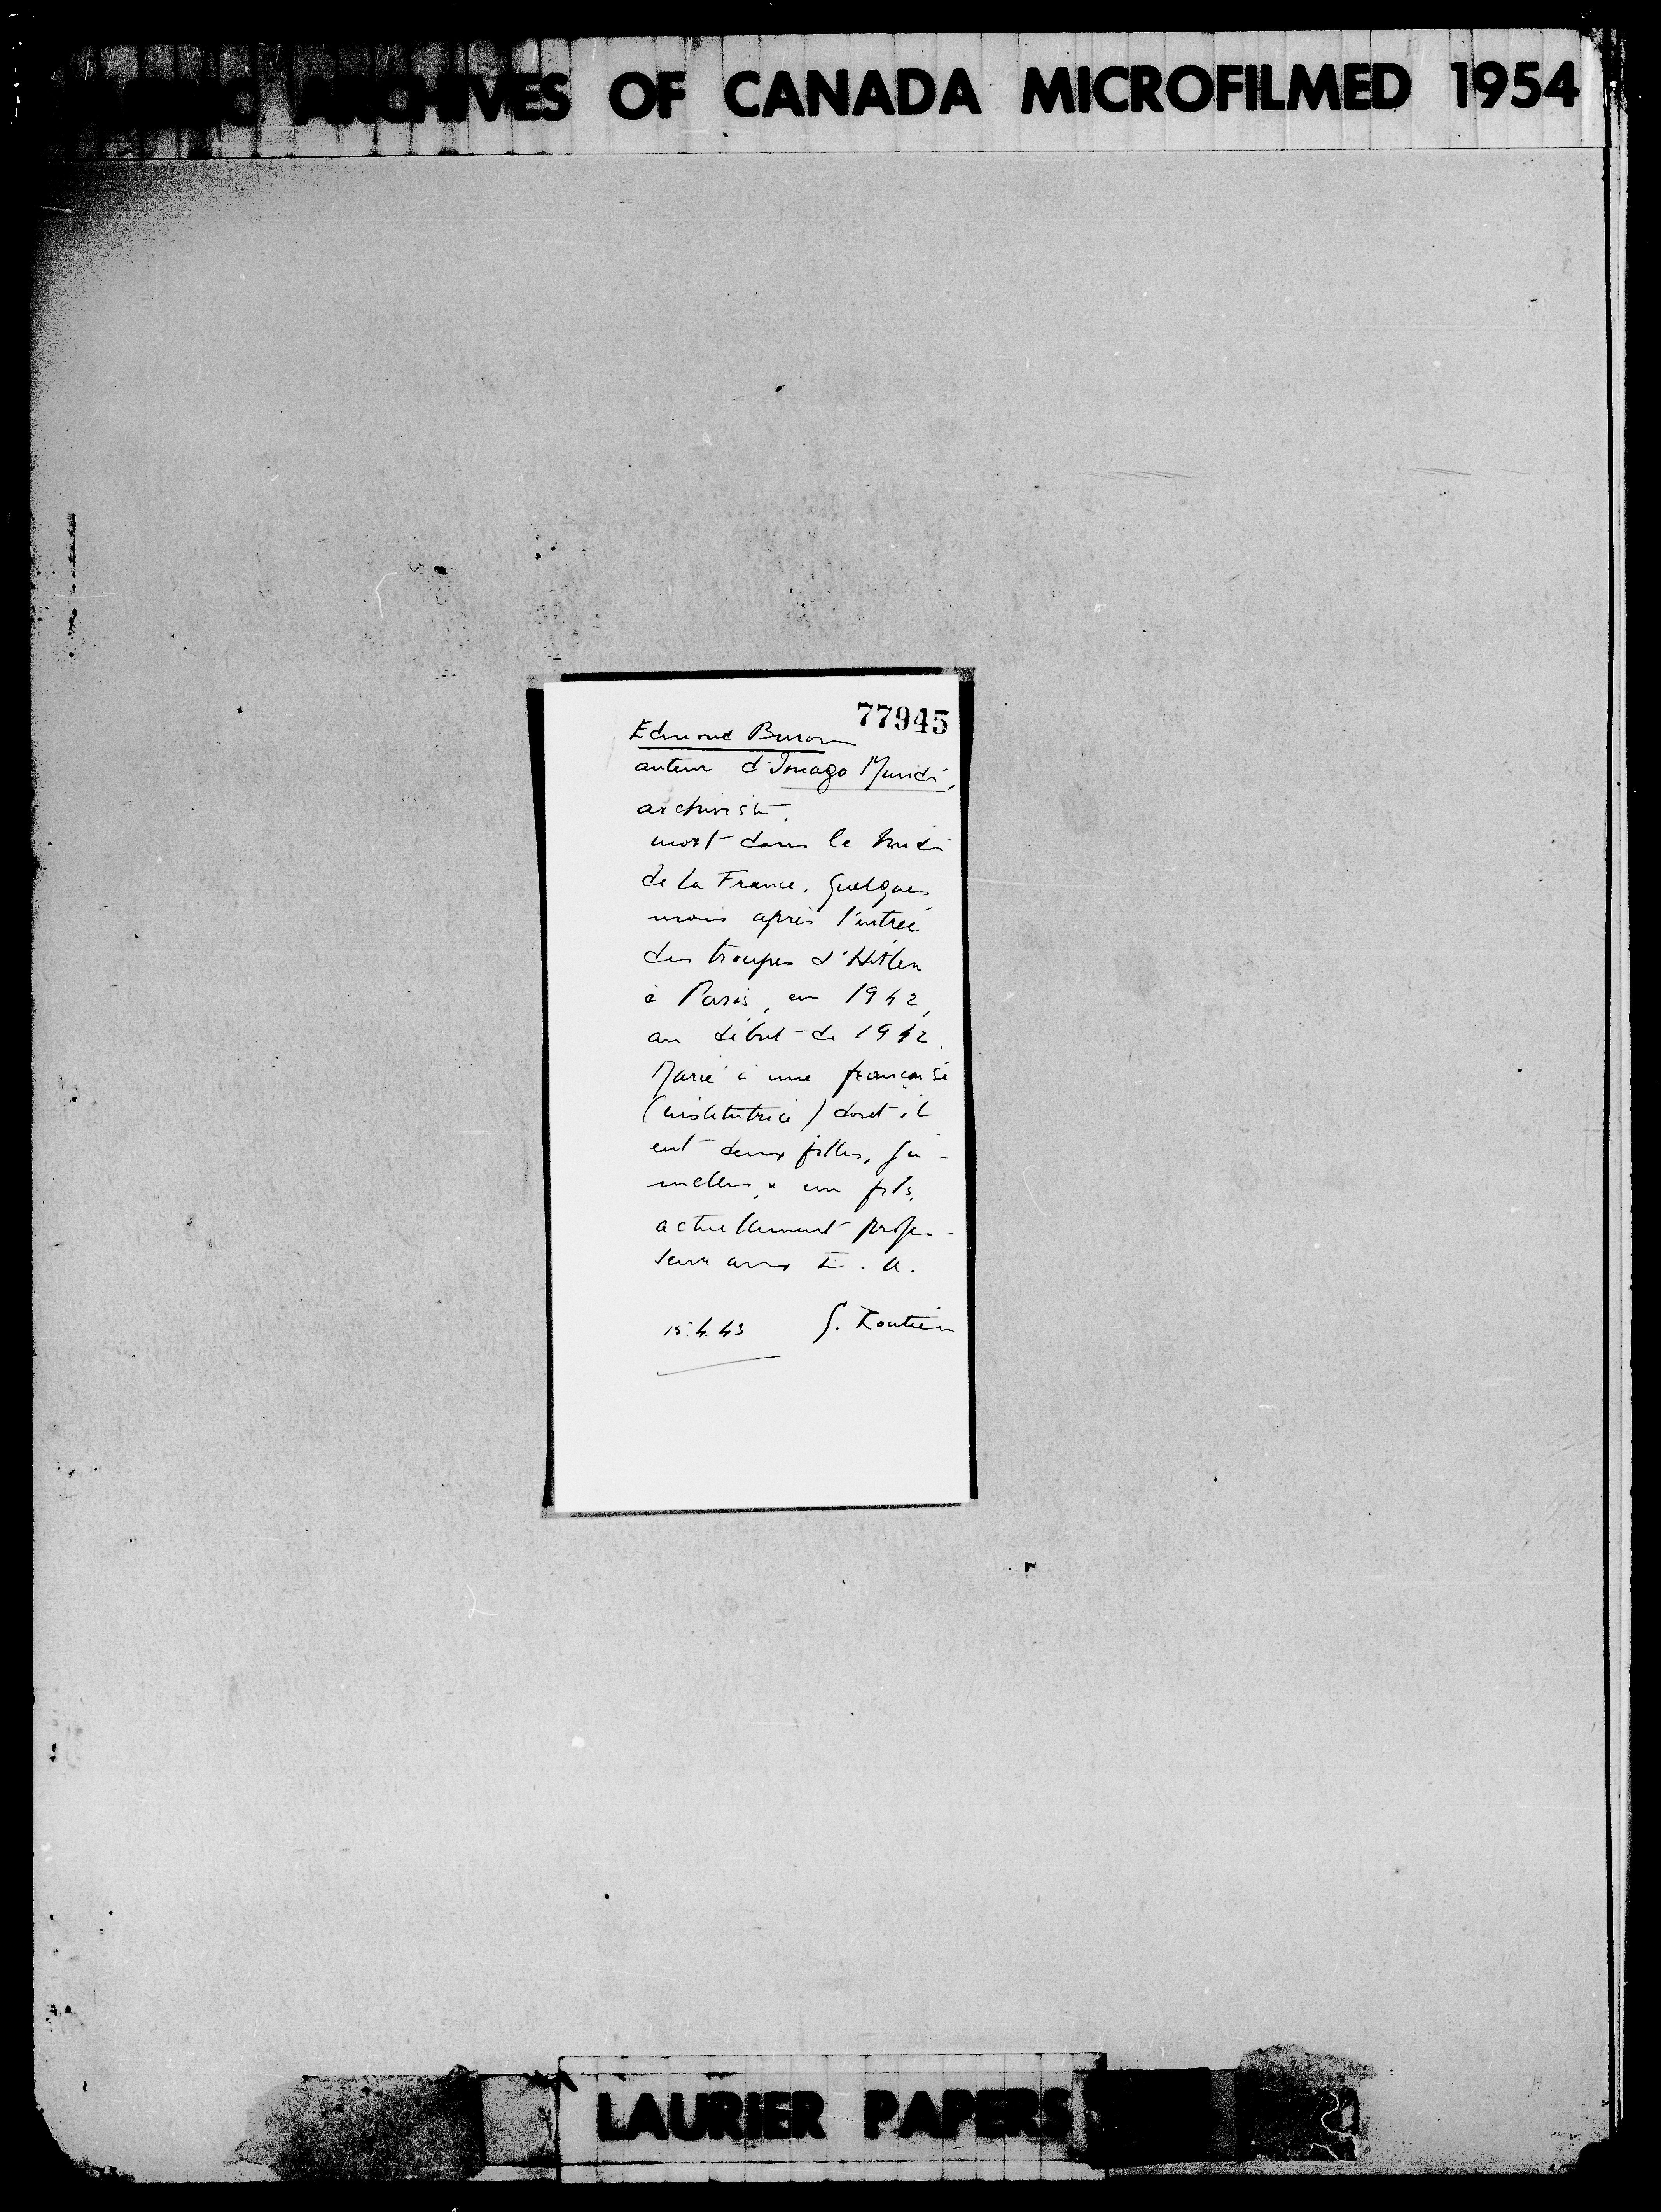 PUBLIC ARCHIVES OF CANADA MICROFILMED 1954
77945
Edmond Buron
auteur d'Imago Mundi,
archiviste,
mort dans le midi
de la France, quelques
mois après l'entrée
des troupes d'Hitler
à Paris, en 1942,
au début de 1942.
Marié à une française
(institutrice) dont il
eut deux filles, ju-
melles, & un fils,
actuellement profes-
seur aux E. U.
15.4.43 G. Lanctôt
LAURIER PAPERS